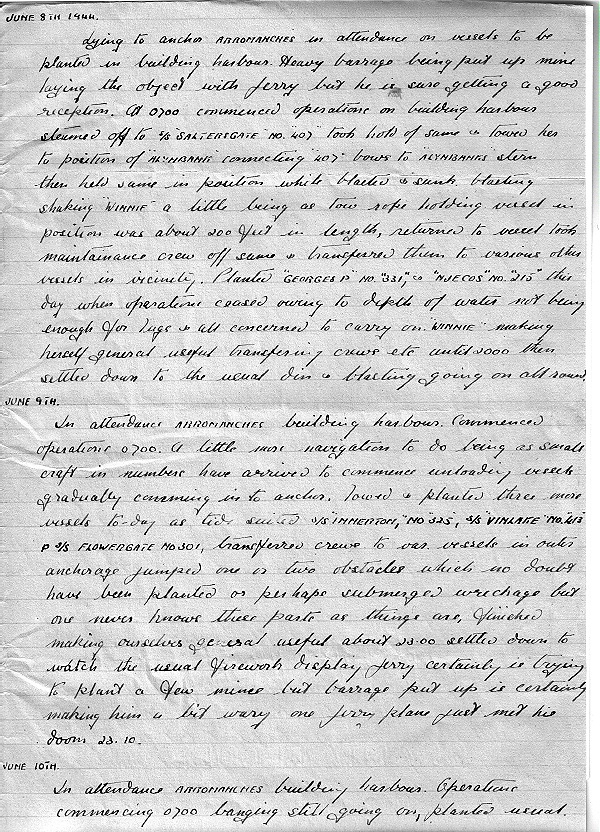 JUNE 8TH 1944.
Lying to anchor ARROMANCHES in attendance on vessels to be
planted in building harbour. Heavy barrage being put up mine
laying the object with Jerry but he is sure getting a good
reception. At 0700 commenced operations on building harbour
steamed off to S/S SALTERSGATE NO. 407 took hold of same & towed her
to position of "ALYNBANK" connecting "407" bows to ALYNBANKS stern
then held same in position while blasted & sunk. blasting
shaking "WINNIE" a little being as tow rope holding vessel in
position was about 200 feet in length, returned to vessel took
maintainance crew off same & transferred them to various other
vessels in vicinity. Planted "GEORGES P" NO. "331", & "NJEGOS" NO. "215" this
day when operations ceased owing to depth of water not being
enough for tugs & all concerned to carry on. "WINNIE" making
herself general useful transfering crews etc until 2000 then
settled down to the usual din & blasting going on all round.
JUNE 9TH.
In attendance ARROMANCHES building harbour. Commenced
operations 0700. A little more navigation to do being as small
craft in numbers have arrived to commence unloading vessels
gradually comming in to anchor. Towed & planted three more
vessels to-day as tide suited S/S "INNERTON," "NO" 325", S/S "VINLAKE" "NO."
S/S FLOWERGATE NO 301, transferred crews to var. vessels in outer
anchorage jumped one or two obstacles which no doubt
have been planted or perhaps submerged wreckage but
one never knows these parts as things are, finished
making ourselves general useful about 2300 settled down to
watch the usual fireworks display Jerry certainly is trying
to plant a few mines but barrage put up is certainly
making him a bit wary one Jerry plane just met his
doom 23.10.
JUNE 10TH.
In attendance ARROMANCHES building harbour. Operations
commencing 0700 banging still going on, planted usual.